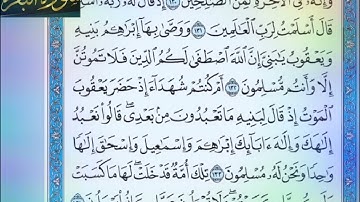 وَإِنَّهُۥ فِي ٱلۡأٓخِرَةِ لَمِنَ ٱلصَّٰلِحِينَ ١٣٠ إِذۡ قَالَ لَهُۥ رَبُّهُۥٓ أَسۡلِمۡۖ
قَالَ أَسۡلَمۡتُ لِرَبِّ ٱلۡعَٰلَمِينَ ١٣١ وَوَصَّىٰ بِهَآ إِبۡرَٰهِـۧمُ بَنِيهِ
وَيَعۡقُوبُ يَٰبَنِيَّ إِنَّ ٱللَّهَ ٱصۡطَفَىٰ لَكُمُ ٱلدِّينَ فَلَا تَمُوتُنَّ
إِلَّا وَأَنتُم مُّسۡلِمُونَ ١٣٢ أَمۡ كُنتُمۡ شُهَدَآءَ إِذۡ حَضَرَ يَعۡقُوبَ
ٱلۡمَوۡتُ إِذۡ قَالَ لِبَنِيهِ مَا تَعۡبُدُونَ مِنۢ بَعۡدِيۖ قَالُواْ نَعۡبُدُ
إِلَٰهَكَ وَإِلَٰهَ ءَابَآئِكَ إِبۡرَٰهِـۧمَ وَإِسۡمَٰعِيلَ وَإِسۡحَٰقَ إِلَٰهٗا
وَٰحِدٗا وَنَحۡنُ لَهُۥ مُسۡلِمُونَ ١٣٣ تِلۡكَ أُمَّةٞ قَدۡ خَلَتۡۖ لَهَا مَا كَسَبَتۡ